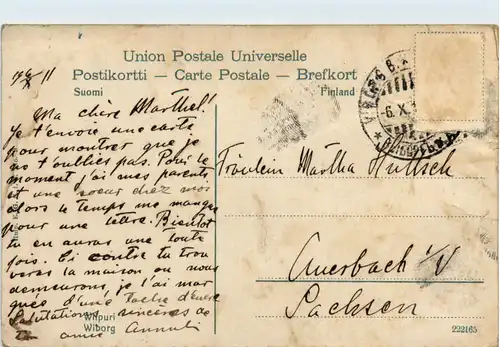 Union Postale Universelle
Postikortti — Carte Postale — Brefkort
Suomi
Finland
Ma chère Marthel!
Je t'envoie une carte
pour montrer que je
ne t'oublies pas. Pour le
moment j'ai mes parents
et une soeur chez moi
alors le temps me manque
pour une lettre. Bientôt
tu en auras une toute
fois. Ci contre tu trou
veras la maison ou nous
demeurons, je l'ai mar
quée d'une tache d'encre
Salutations sincères de
amie
Fräulein Martha
Auerbach i/V
Sachsen
Wiipuri
Wiborg
222165